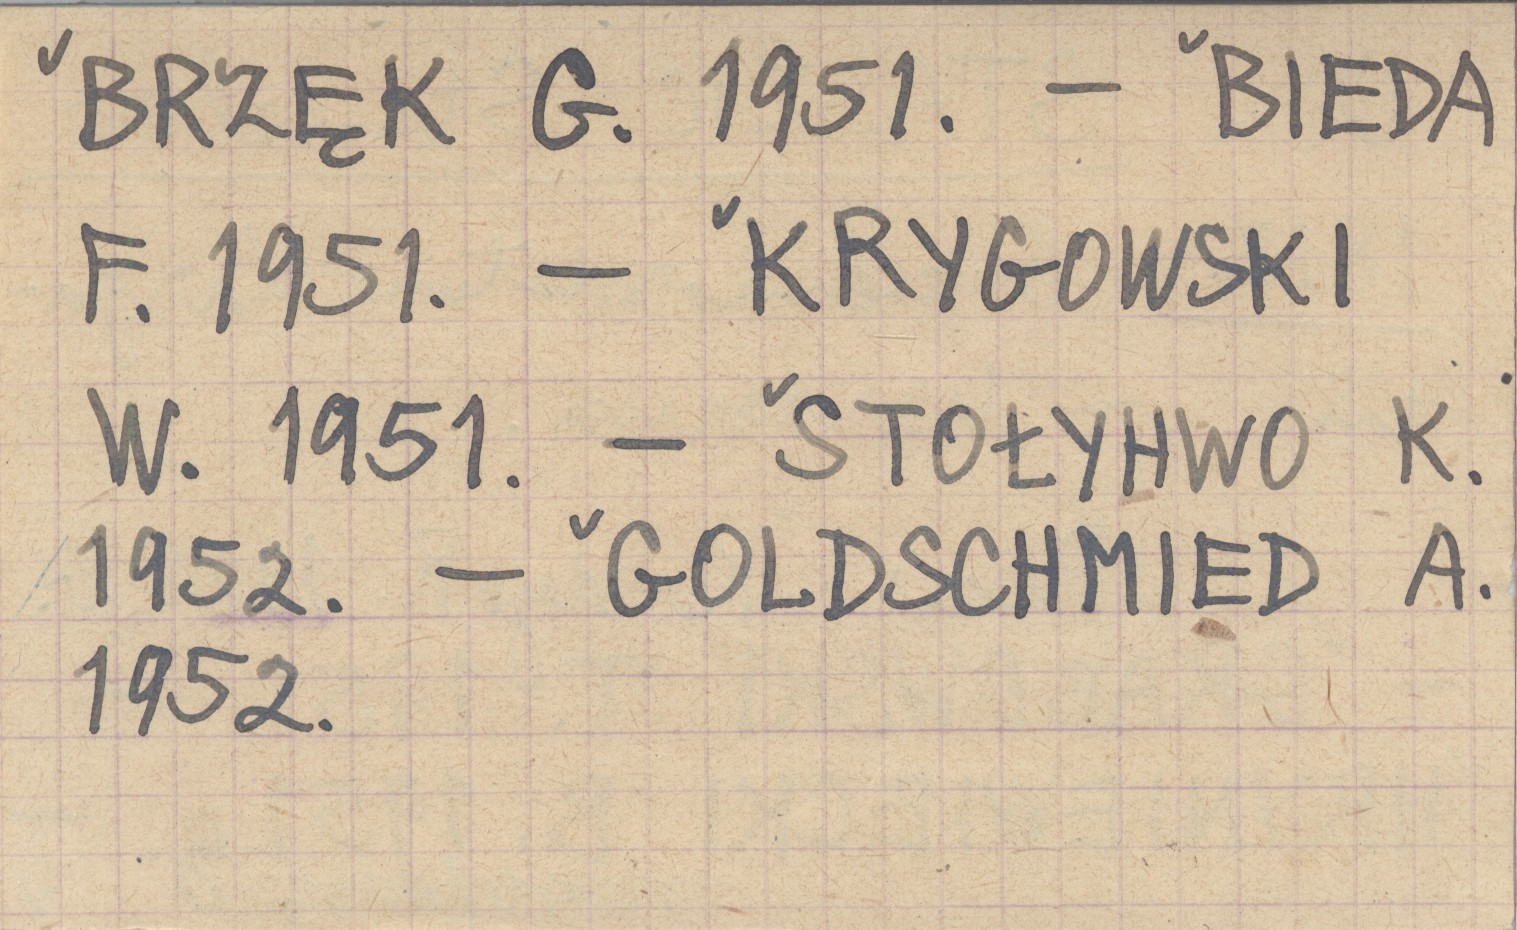 ✓BRZĘK G. 1951. — ✓BIEDA
F. 1951. — ✓KRYGOWSKI
W. 1951. — ✓STOŁYHWO K.
1952. — ✓GOLDSCHMIED A.
1952.